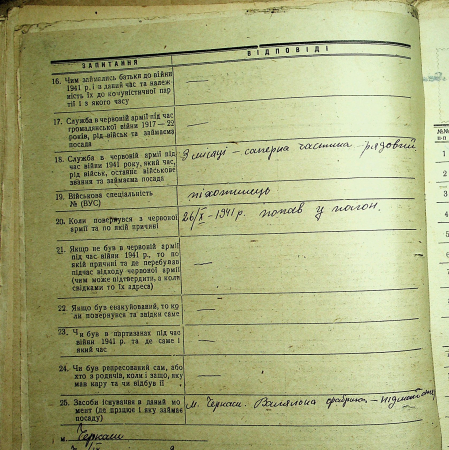 ЗАПИТАННЯ ВІДПОВІДІ
16. Чим займались батьки до війни
1941 р. і в даний час та належ-
ність їх до комуністичної пар-
тії і з якого часу
17. Служба в червоній армії під час
громадянської війни 1917—22
років, рід військ та займаєма
посада
18. Служба в червоній армії під
час війни 1941 року, який час,
рід військ, останнє військове
звання та займаєма посада
3 місяці – саперна частина рядовий
19. Військова спеціальність
№ (ВУС)
піхотинець
20. Коли повернувся з червоної
армії та по якій причині
26/IX – 1941 р. попав у полон.
21. Якщо не був в червоній армії
під час війни 1941 р., то по
якій причині та де перебував
підчас відходу червоної армії
(чим може підтвердити, а коли
свідками то їх адреса)
22. Якщо був евакуйований, то ко-
ли повернувся та звідки саме
23. Чи був в партизанах під час
війни 1941 р. та де саме і
який час
24. Чи був репресований сам, або
хто з родичів, коли і защо, яку
мав кару та чи відбув її
25. Засоби існування в даний мо-
мент (де працює і яку займає
посаду)
м. Черкаси. Валяльна фабрика –
м. Черкаси
1
2
3
4
5
6
7
8